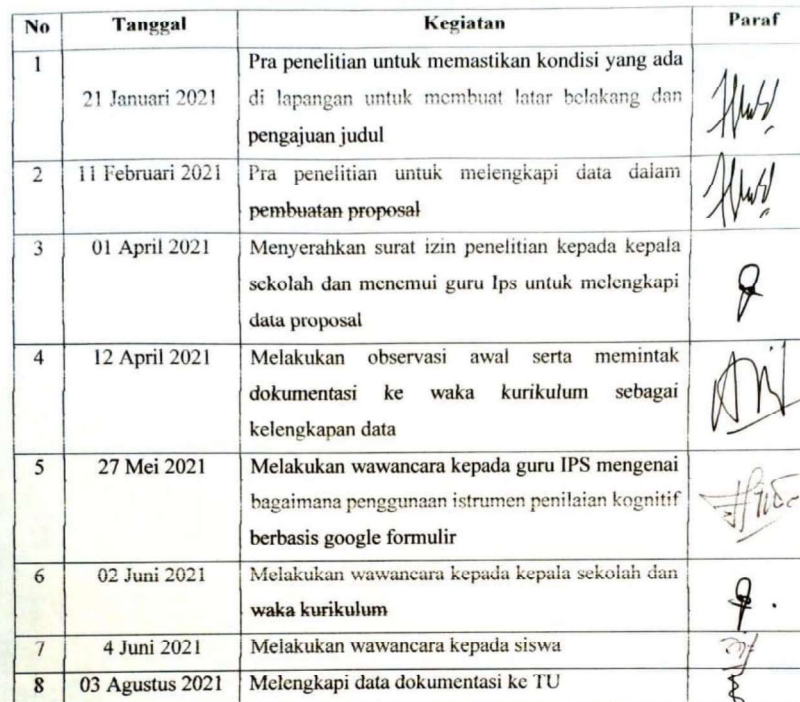 No Tanggal Kegiatan Paraf
1 Pra penelitian untuk memastikan kondisi yang ada
21 Januari 2021 di lapangan untuk membuat latar belakang dan
pengajuan judul
2 11 Februari 2021 Pra penelitian untuk melengkapi data dalam
pembuatan proposal
3 01 April 2021 Menyerahkan surat izin penelitian kepada kepala
sekolah dan menemui guru Ips untuk melengkapi
data proposal
4 12 April 2021 Melakukan observasi awal serta memintak
dokumentasi ke waka kurikulum sebagai
kelengkapan data
5 27 Mei 2021 Melakukan wawancara kepada guru IPS mengenai
bagaimana penggunaan istrumen penilaian kognitif
berbasis google formulir
6 02 Juni 2021 Melakukan wawancara kepada kepala sekolah dan
waka kurikulum
7 4 Juni 2021 Melakukan wawancara kepada siswa
8 03 Agustus 2021 Melengkapi data dokumentasi ke TU